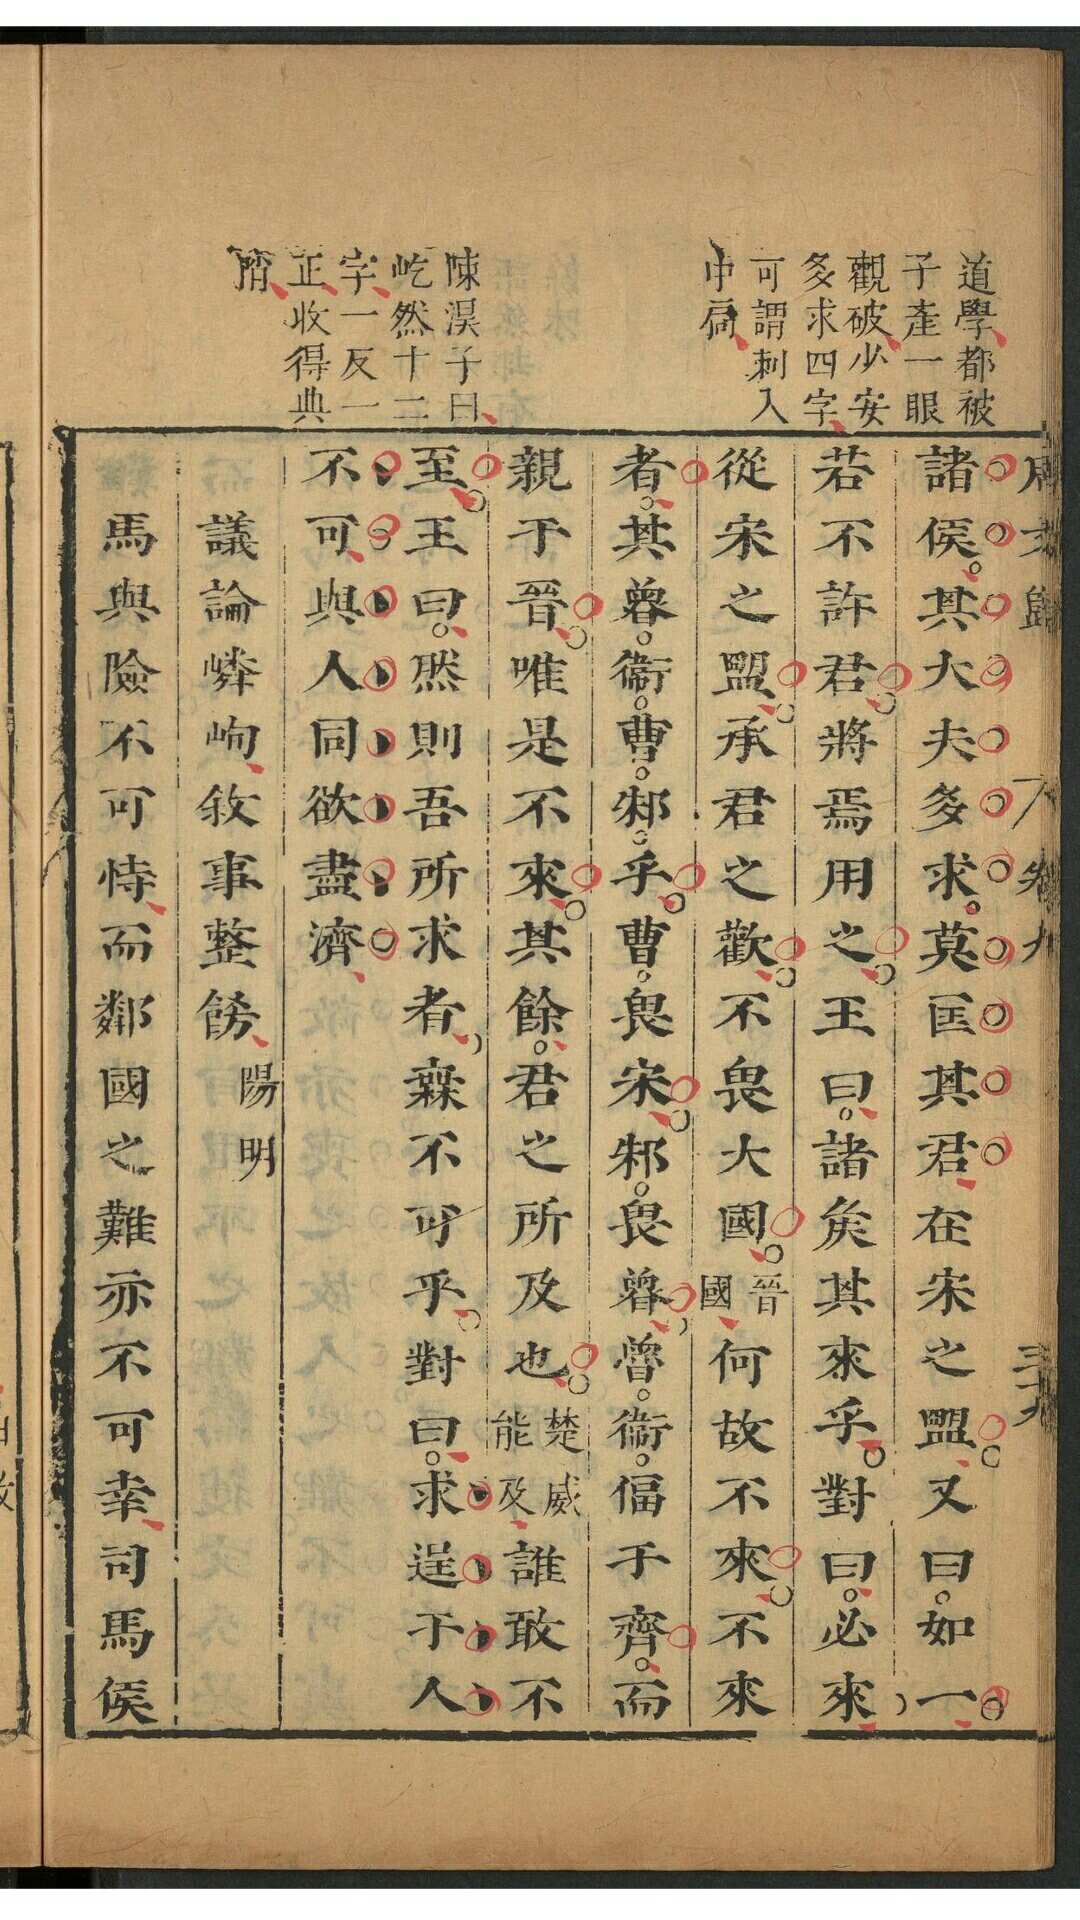 道學都被
子產一眼
觀破少安
多求四字
可謂刺入
中扃
陳淏子曰
屹然十二
字一反一
正收得典
諸侯其大夫多求莫匡其君在宋之盟又曰如一
若不許君將焉用之王曰諸矦其來乎對曰必來
從宋之盟承君之歡不畏大國晉國何故不來不來
者其魯衛曹邾乎曹畏宋邾畏魯魯衛偪于齊而
親于晉唯是不來其餘君之所及也楚威能及誰敢不
至王曰然則吾所求者無不可乎對曰求逞于人
不可與人同欲盡濟
議論嶙峋敘事整飭陽明
馬與險不可恃而鄰國之難亦不可幸司馬侯
卷九
三十九